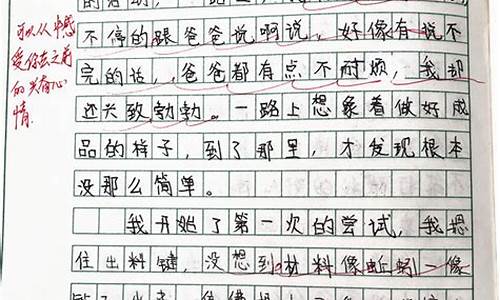 不停的跟爸爸说啊说，好像有说不
完的话，爸爸都有点不耐烦，我却
还兴致勃勃。一路上想象着做好成
品的样子，到了那里，才发现根本
没那么简单。
我开始了第一次的尝试，我摁
住出料键，没想到材料像蚯蚓一像
可以从中感
受你去之前
的兴奋心
情.